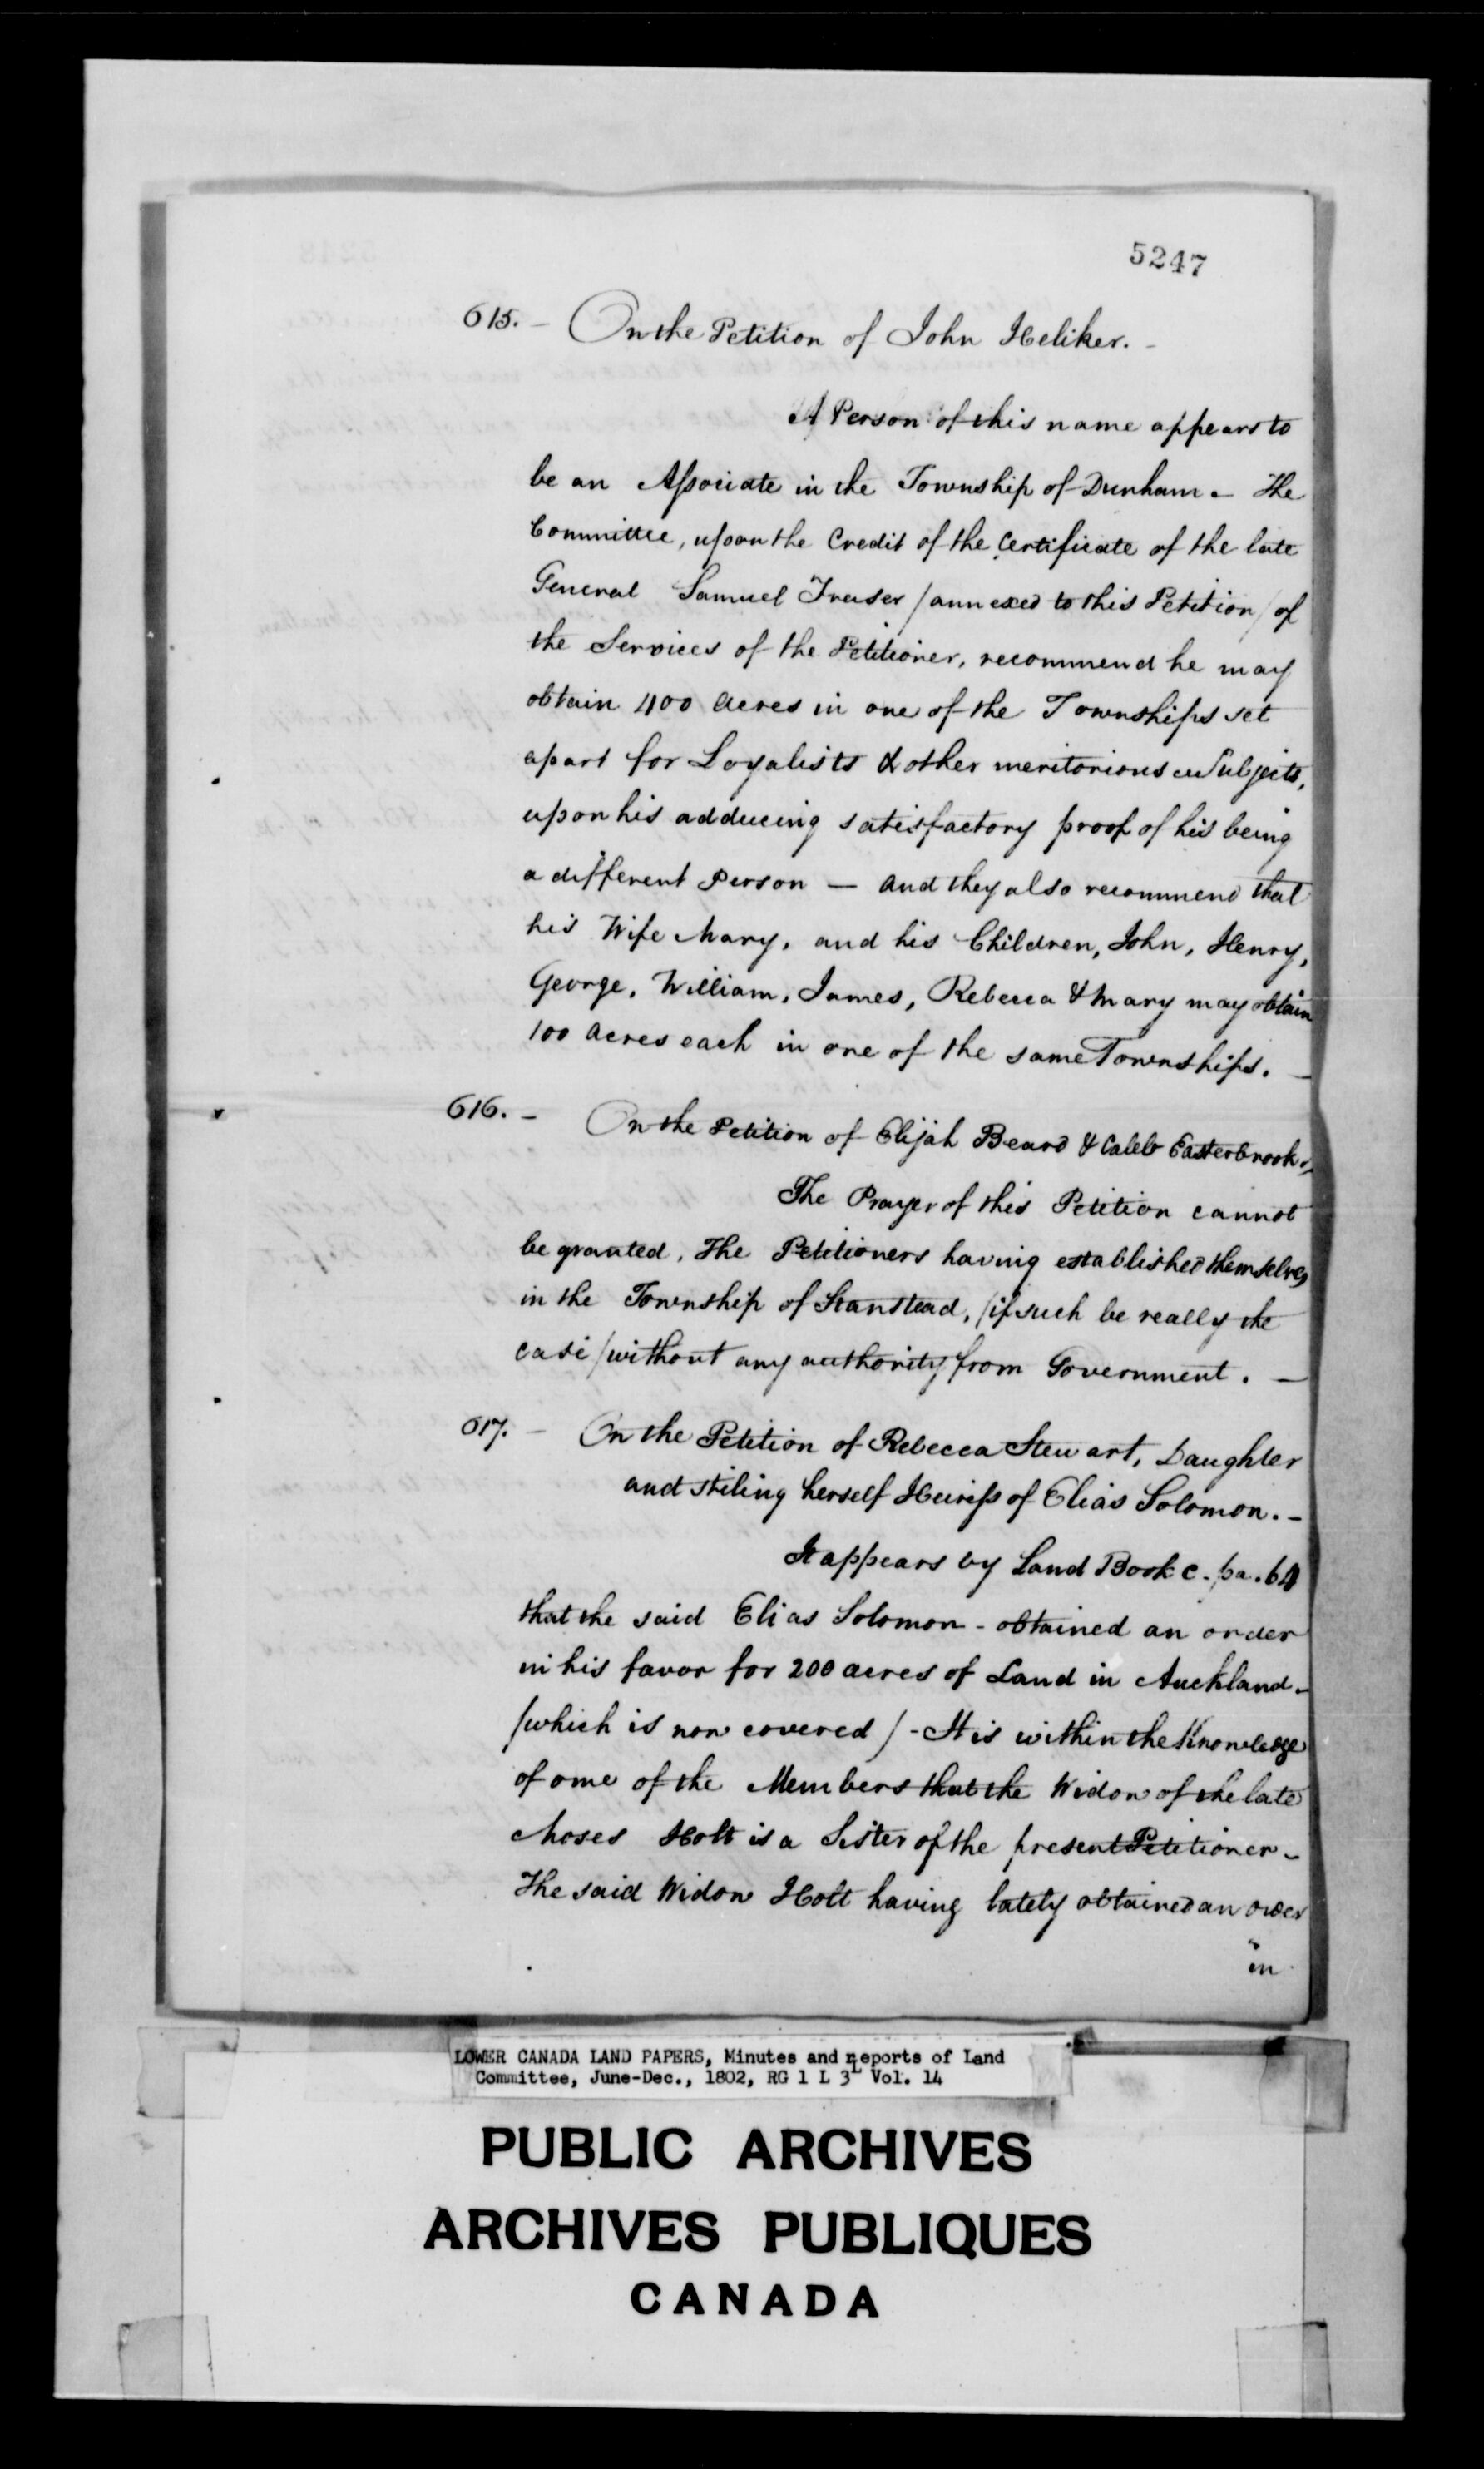 5247
615. - On the Petition of John Heliker. -
A Person of this name appears to
be an Associate in the Township of Dunham - The
Committee, upon the Credit of the Certificate of the late
General Samuel Fraser /annexed to this Petition/ of
the Services of the Petitioner, recommend he may
obtain 400 Acres in one of the Townships set
apart for Loyalists & other meritorious Subjects,
upon his adducing satisfactory proof of his being
a different Person — and they also recommend that
his Wife Mary, and his Children, John, Henry,
George, William, James, Rebecca & Mary may obtain
100 Acres each in one of the same Townships. —
616. - On the Petition of Elijah Beard & Caleb Easterbrooks,
The Prayer of this Petition cannot
be granted. The Petitioners having established themselves
in the Township of Stanstead, /if such be really the
case/ without any authority from Government. —
617. - On the Petition of Rebecca Stewart, Daughter
and stiling herself Heiress of Elias Solomon. -
It appears by Land Book C. pa. 64
that the said Elias Solomon - obtained an order
in his favor for 200 acres of Land in Auckland -
/which is now covered/ - It is within the Knowledge
of one of the Members that the Widow of the late
Moses Holt is a Sister of the present Petitioner -
The said Widow Holt having lately obtained an order
in
LOWER CANADA LAND PAPERS, Minutes and Reports of Land
Committee, June-Dec., 1802, RG 1 L 3L Vol. 14
PUBLIC ARCHIVES
ARCHIVES PUBLIQUES
CANADA